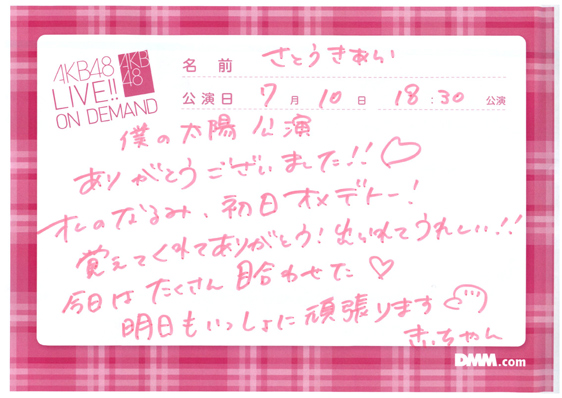 AKB48
LIVE!!
ON DEMAND
AKB
48
名前 さとうきあら
公演日 7月10日 18:30 公演
僕の太陽 公演
ありがとうございました!! ♡
オレのなるみ、初日オメデトー!
覚えてくれてありがとう! 出られてうれしい!!
今日はたくさん目合わせた ♡
明日もいっしょに頑張ります
きぃちゃん
DMM.com